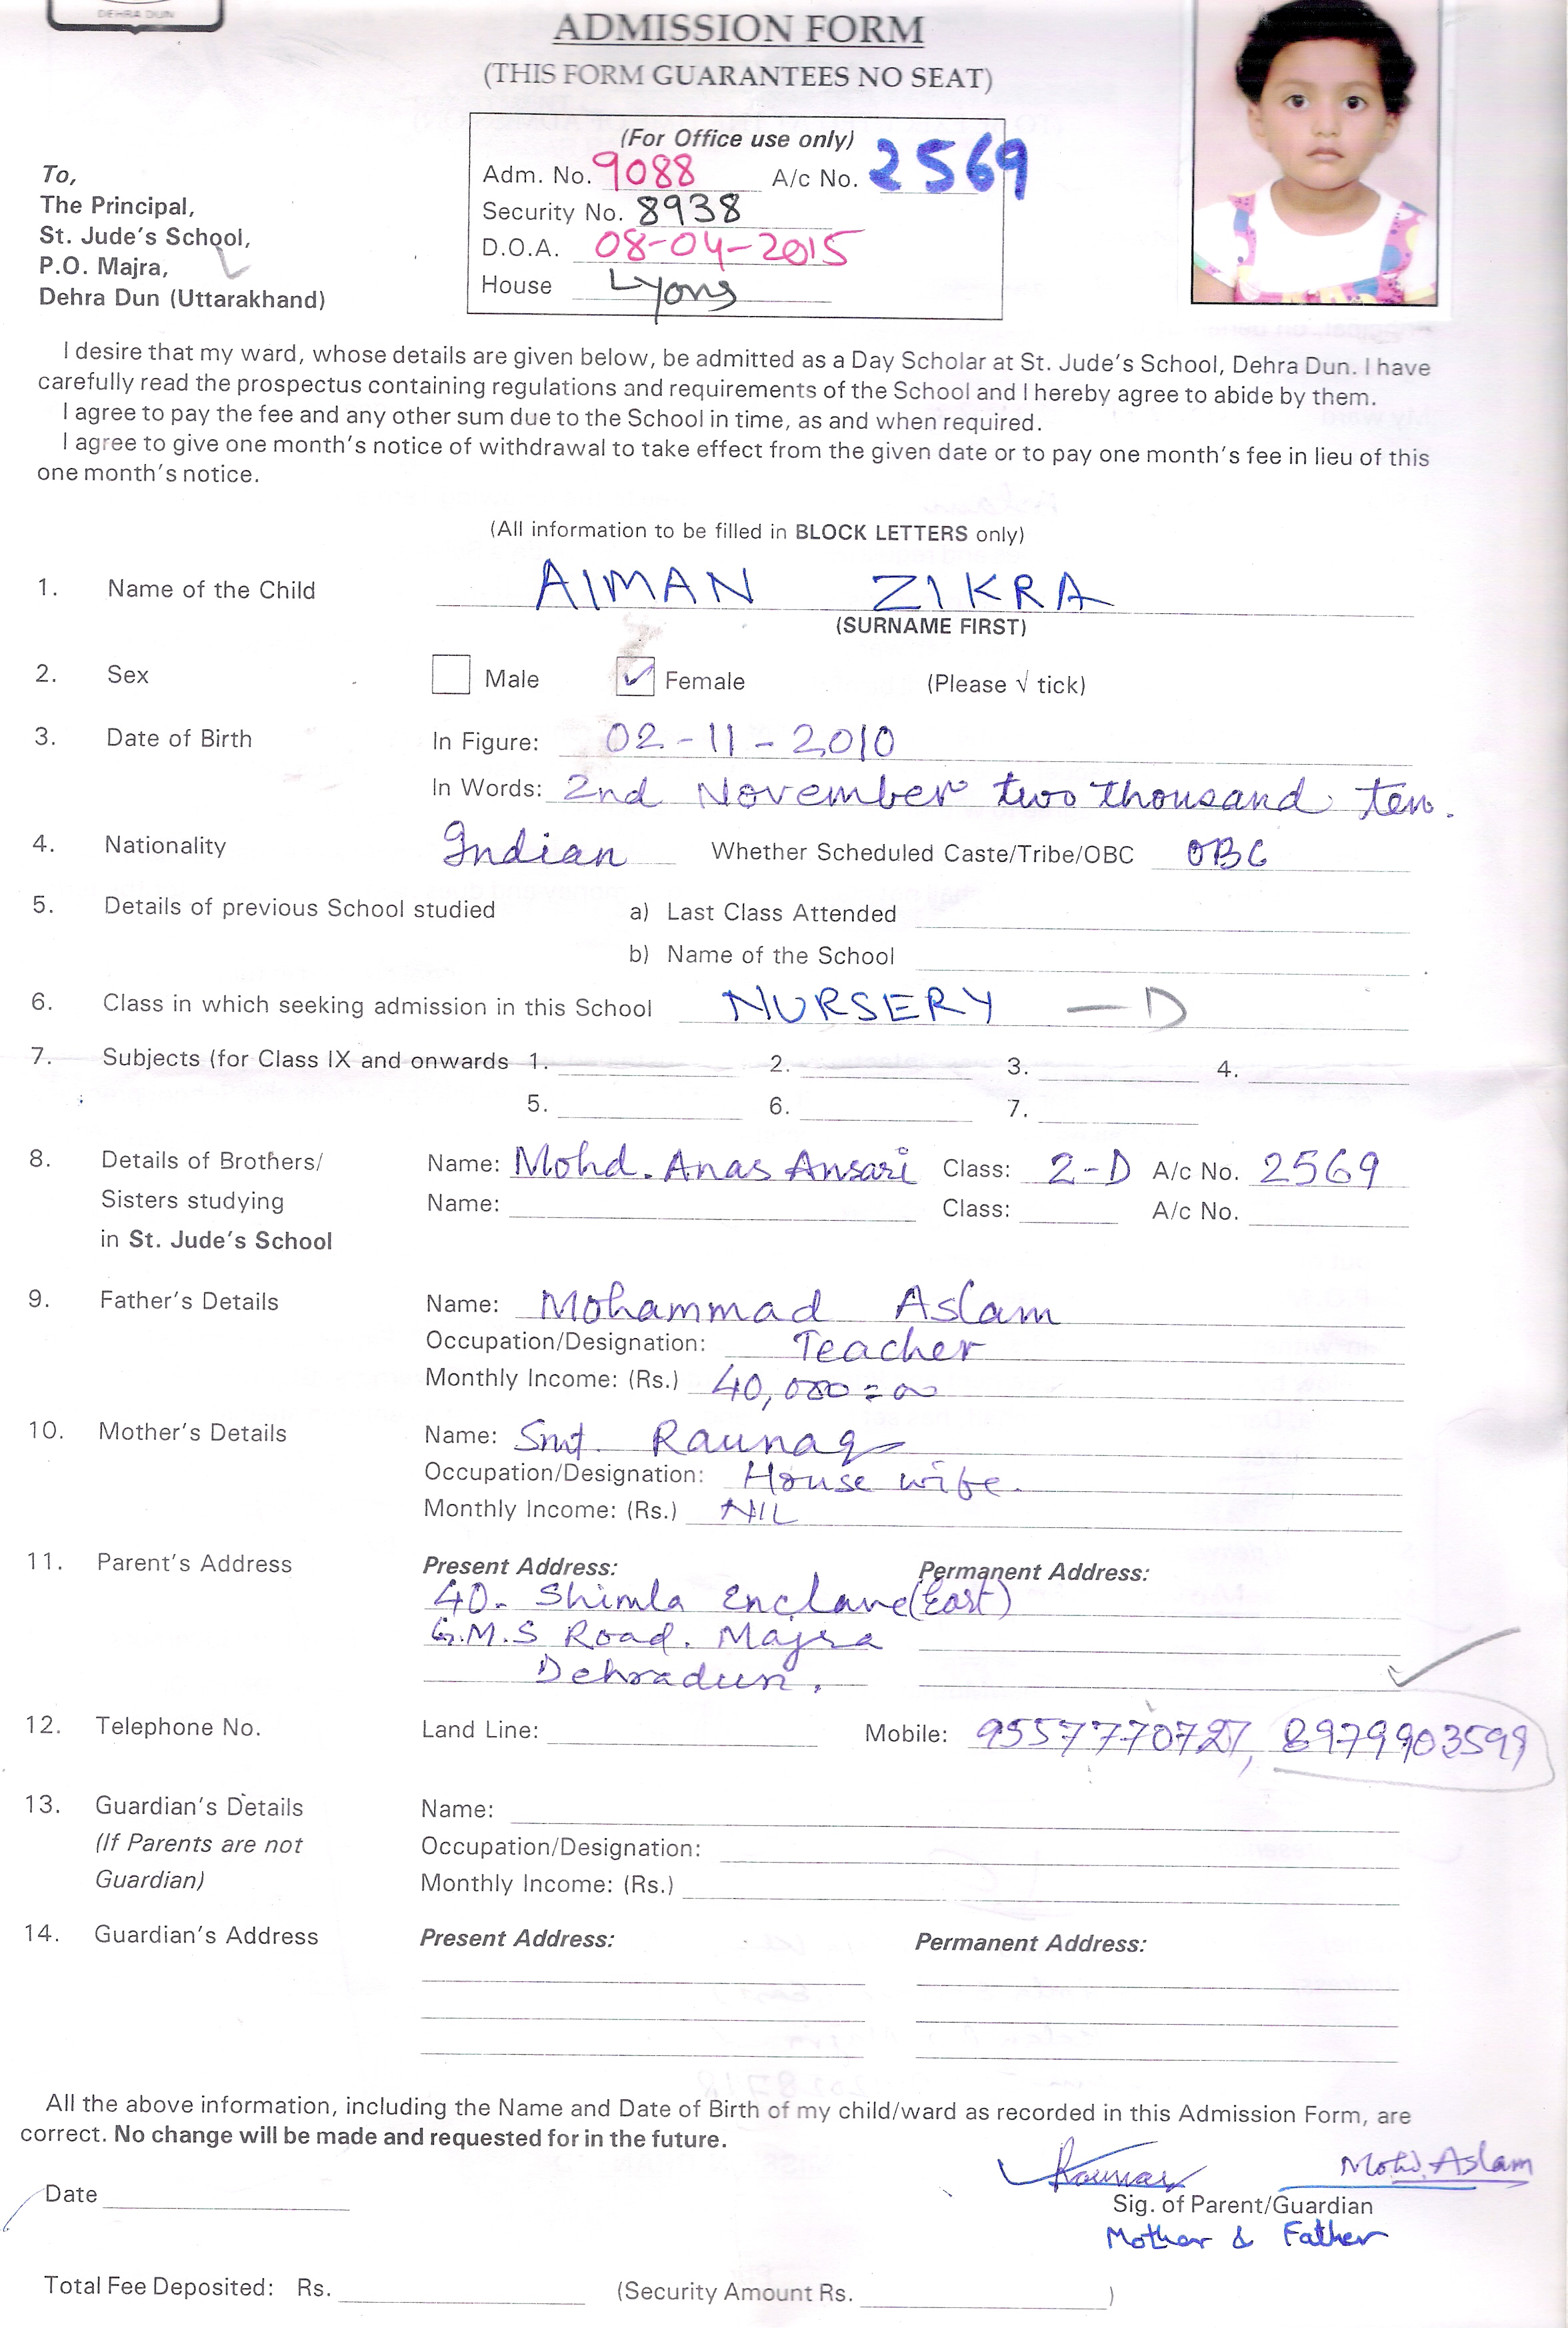 DEHRA DUN
ADMISSION FORM
(THIS FORM GUARANTEES NO SEAT)
(For Office use only)
Adm. No. 9088 A/c No. 2569
Security No. 8938
D.O.A. 08-04-2015
House Lyons
To,
The Principal,
St. Jude's School,
P.O. Majra,
Dehra Dun (Uttarakhand)
I desire that my ward, whose details are given below, be admitted as a Day Scholar at St. Jude's School, Dehra Dun. I have
carefully read the prospectus containing regulations and requirements of the School and I hereby agree to abide by them.
I agree to pay the fee and any other sum due to the School in time, as and when required.
I agree to give one month's notice of withdrawal to take effect from the given date or to pay one month's fee in lieu of this
one month's notice.
(All information to be filled in BLOCK LETTERS only)
1. Name of the Child AIMAN ZIKRA
(SURNAME FIRST)
2. Sex Male ✓ Female (Please √ tick)
3. Date of Birth In Figure: 02-11-2010
In Words: 2nd November two thousand ten.
4. Nationality Indian Whether Scheduled Caste/Tribe/OBC OBC
5. Details of previous School studied a) Last Class Attended
b) Name of the School
6. Class in which seeking admission in this School NURSERY — D
7. Subjects (for Class IX and onwards 1. 2. 3. 4.
5. 6. 7.
8. Details of Brothers/ Name: Mohd. Anas Ansari Class: 2-D A/c No. 2569
Sisters studying Name: Class: A/c No.
in St. Jude's School
9. Father's Details Name: Mohammad Aslam
Occupation/Designation: Teacher
Monthly Income: (Rs.) 40,000=00
10. Mother's Details Name: Smt. Raunaq
Occupation/Designation: House wife.
Monthly Income: (Rs.) NIL
11. Parent's Address Present Address: Permanent Address:
40- Shimla Enclave (East)
G.M.S Road. Majra
Dehradun.
12. Telephone No. Land Line: Mobile: 9557770727, 8979903599
13. Guardian's Details Name:
(If Parents are not Occupation/Designation:
Guardian) Monthly Income: (Rs.)
14. Guardian's Address Present Address: Permanent Address:
All the above information, including the Name and Date of Birth of my child/ward as recorded in this Admission Form, are
correct. No change will be made and requested for in the future.
Raunaq Mohd. Aslam
Date Sig. of Parent/Guardian
Mother & Father
Total Fee Deposited: Rs. (Security Amount Rs. )